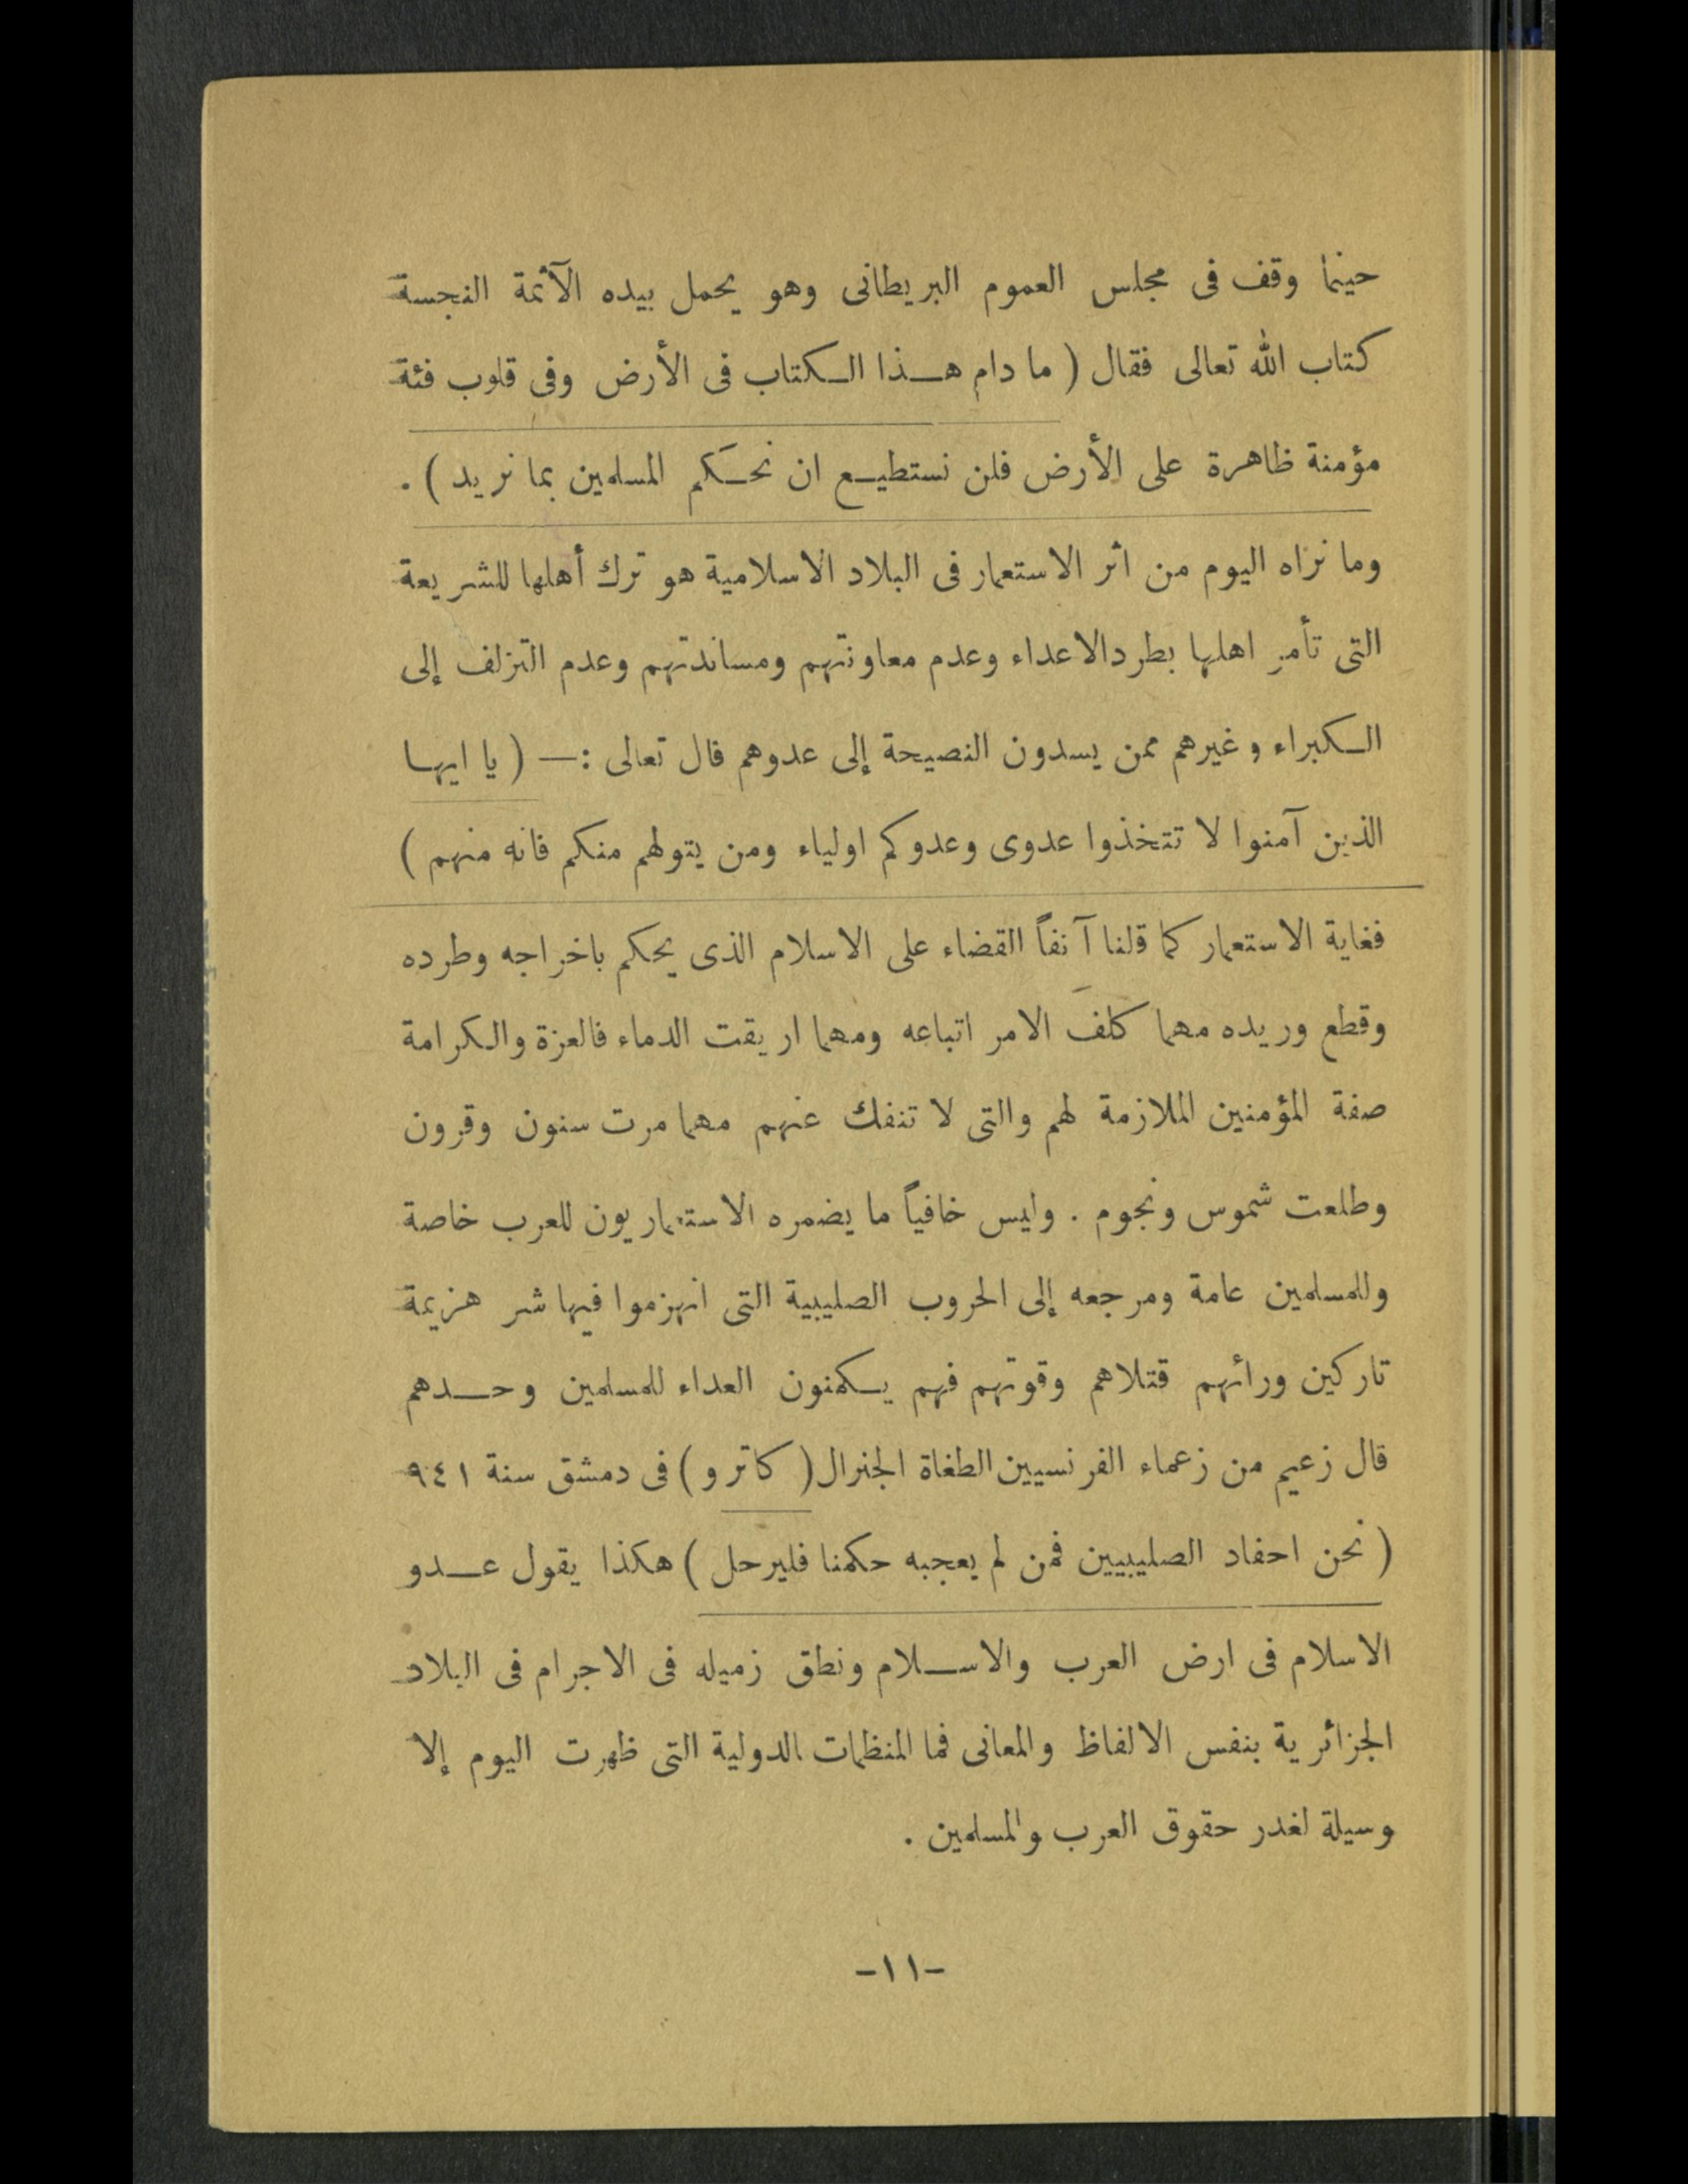 حينما وقف فى مجلس العموم البريطانى وهو يحمل بيده الآثمة النجسة
كتاب الله تعالى فقال ( ما دام هـذا الـكتاب فى الأرض وفى قلوب فئة
مؤمنة ظاهرة على الأرض فلن نستطيـع ان نحـكم المسلمين بما نريد ) .
وما نراه اليوم من اثر الاستعمار فى البلاد الاسلامية هو ترك أهلها للشريعة
التى تأمر اهلها بطردالاعداء وعدم معاونتهم ومساندتهم وعدم التزلف إلى
الـكبراء وغيرهم ممن يسدون النصيحة إلى عدوهم قال تعالى :— ( يا ايهـا
الذين آمنوا لا تتخذوا عدوى وعدوكم اولياء ومن يتولهم منكم فانه منهم )
فغاية الاستعمار كما قلنا آنفاً القضاء على الاسلام الذى يحكم باخراجه وطرده
وقطع وريده مهما كلف الامر اتباعه ومهما اريقت الدماء فالعزة والـكرامة
صفة المؤمنين الملازمة لهم والتى لا تنفك عنهم مهما مرت سنون وقرون
وطلعت شموس ونجوم . وليس خافياً ما يضمره الاستعماريون للعرب خاصة
وللمسلمين عامة ومرجعه إلى الحروب الصليبية التى انهزموا فيها شر هزيمة
تاركين ورائهم قتلاهم وقوتهم فهم يـكمنون العداء للمسلمين وحـدهم
قال زعيم من زعماء الفرنسيين الطغاة الجنرال ( كاترو ) فى دمشق سنة ٩٤١
( نحن احفاد الصليبيين فمن لم يعجبه حكمنا فليرحل ) هكذا يقول عـدو
الاسلام فى ارض العرب والاسـلام ونطق زميله فى الاجرام فى البلاد
الجزائرية بنفس الالفاظ والمعانى فما المنظمات الدولية التى ظهرت اليوم إلا
وسيلة لغدر حقوق العرب والمسلمين .
-١١-